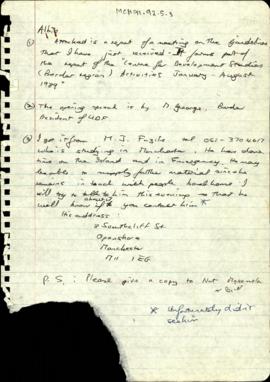 MCH91-92-5-3
① Attached is a report of a meeting on the Guidelines
that I have just received. It forms part of
the report of the "Centre for Development Studies
(Border region) Activities January - August
1989"
② The opening speech is by M. George, Border
President of UDF
③ I got it from M. J. Fuzile tel 061-370 4617
who is studying in Manchester. He has done
time on the Island and in Emergency. He may
be able to supply further material since he
remains in touch with people back home. I
will try to this evening so that he
will know if you contact him *
His address:
Southcliff St
Openshaw
Manchester
M11 1EG
P.S.: Please give a copy to
* Unfortunately didn't
see him